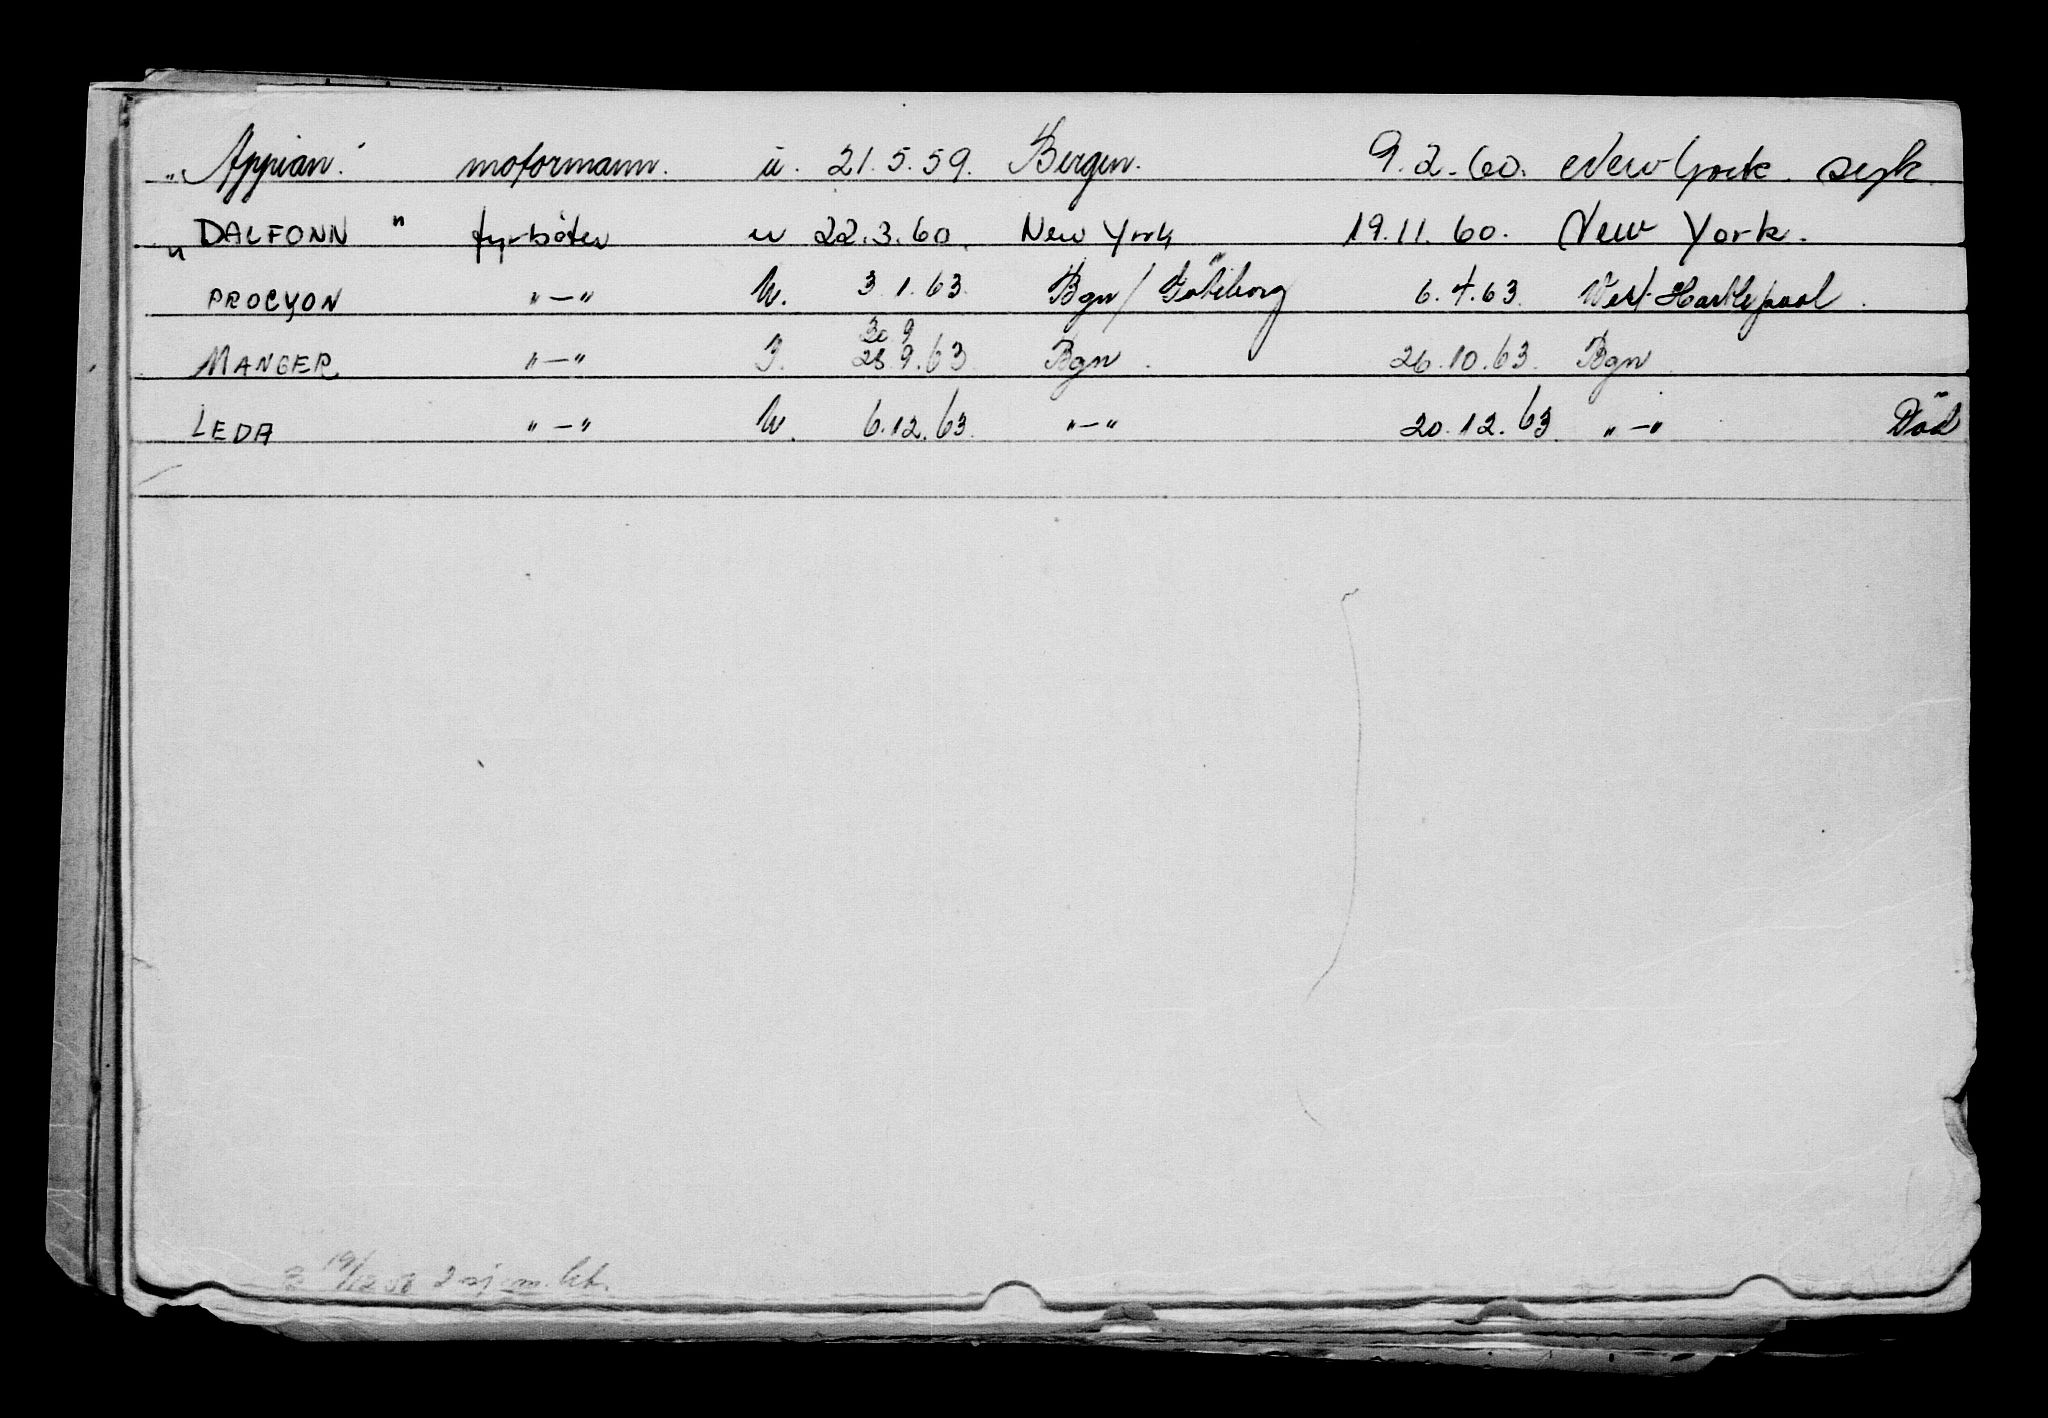 "Appian." motormann. u. 21.5.59. Bergen. 9.2.60. New York. syk
"DALFONN" fyrbøter u 22.3.60. New York 19.11.60. New York.
PROCYON "—" U. 3.1.63. Bgn / Göteborg 6.4.63. West-Hartlepool.
30 9
MANGER "—" I. 28.9.63 Bgn. 26.10.63. Bgn.
LEDA "—" U. 6.12.63. "—" 20.12.63. "—" Död
19/12 2